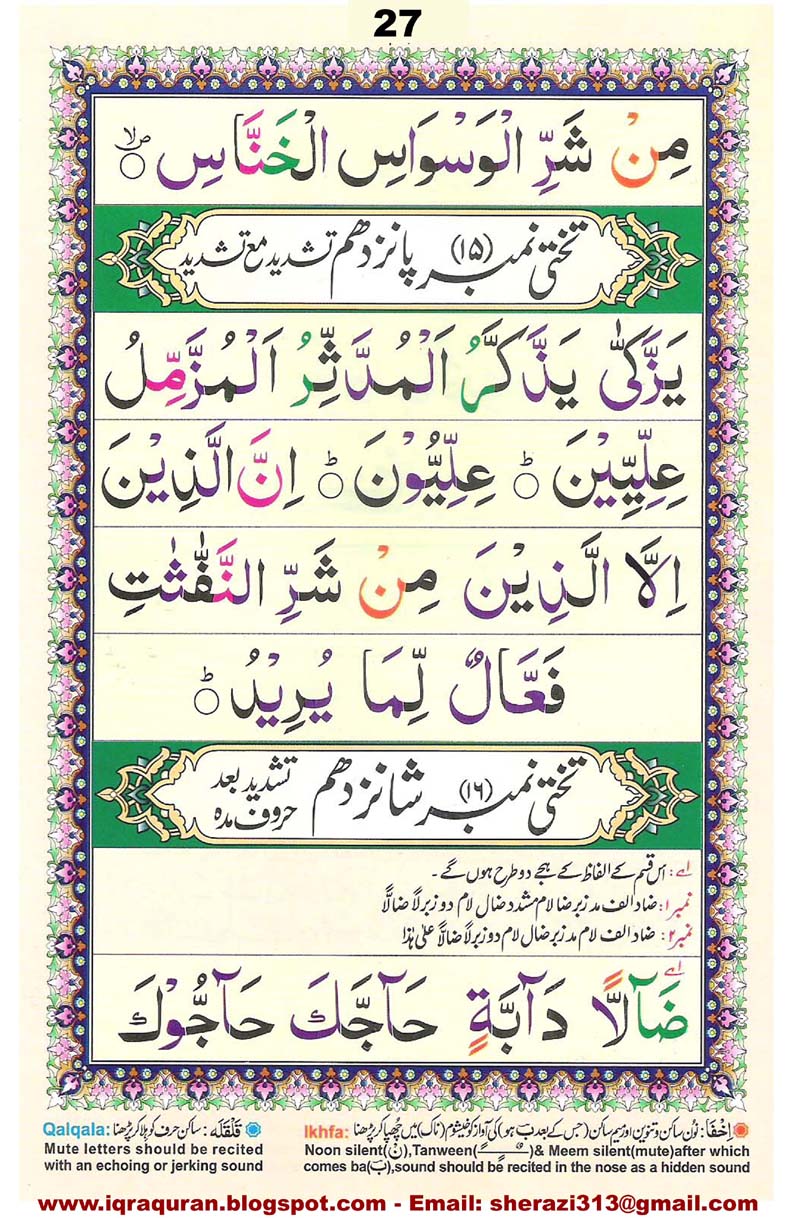 27
مِنْ شَرِّ الْوَسْوَاسِ الْخَنَّاسِ ۙ
تختی نمبر (۱۵) پانزدھم تشدید مع تشدید
يَزَّكّٰى يَذَّكَّرُ اَلْمُدَّثِّرُ اَلْمُزَّمِّلُ
عِلِّيِّيْنَ ؕ عِلِّيُّوْنَ ؕ اِنَّ الَّذِيْنَ
اِلَّا الَّذِيْنَ مِنْ شَرِّ النَّفّٰثٰتِ
فَعَّالٌ لِّمَا يُرِيْدُ ؕ
تختی نمبر (۱۶) شانزدھم تشدید بعد حروف مدہ
اے: اس قسم کے الفاظ کے ہجے دو طرح ہوں گے۔
نمبر۱: ضاد الف مد زبر ضا لام مشدد ضال لام دو زبر لاً ضالاًّ
نمبر۲: ضاد الف لام مد زبر ضال لام دو زبر لاً ضالاًّ علٰی ہٰذا
ضَآلًّا دَآبَّةٍ حَآجَّكَ حَآجُّوْكَ
اِخفَا: نون ساکن و تنوین اور میم ساکن (جس کے بعد ب ہو) کی آواز کو خیشوم (ناک) میں چھپا کر پڑھنا
Ikhfa: Noon silent(نْ),Tanween(ًٌٍ)& Meem silent(mute)after which
comes ba(بَ),sound should be recited in the nose as a hidden sound
قَلْقَلَه: ساکن حرف کو ہلا کر پڑھنا
Qalqala:
Mute letters should be recited
with an echoing or jerking sound
www.iqraquran.blogspot.com - Email: sherazi313@gmail.com